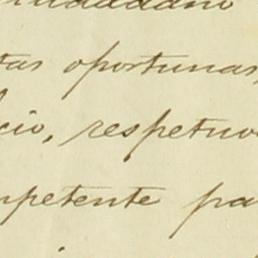 ciudadano
tas oportunas,
cio, respetuo
mpetente pa